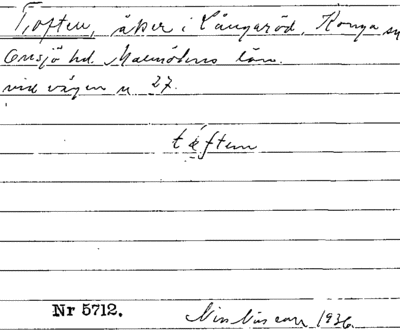 Toften, åker i Långaröd, Konga sn
Onsjö hd. Malmöhus län.
vid vägen n 27.
täften
Nr 5712.
1936